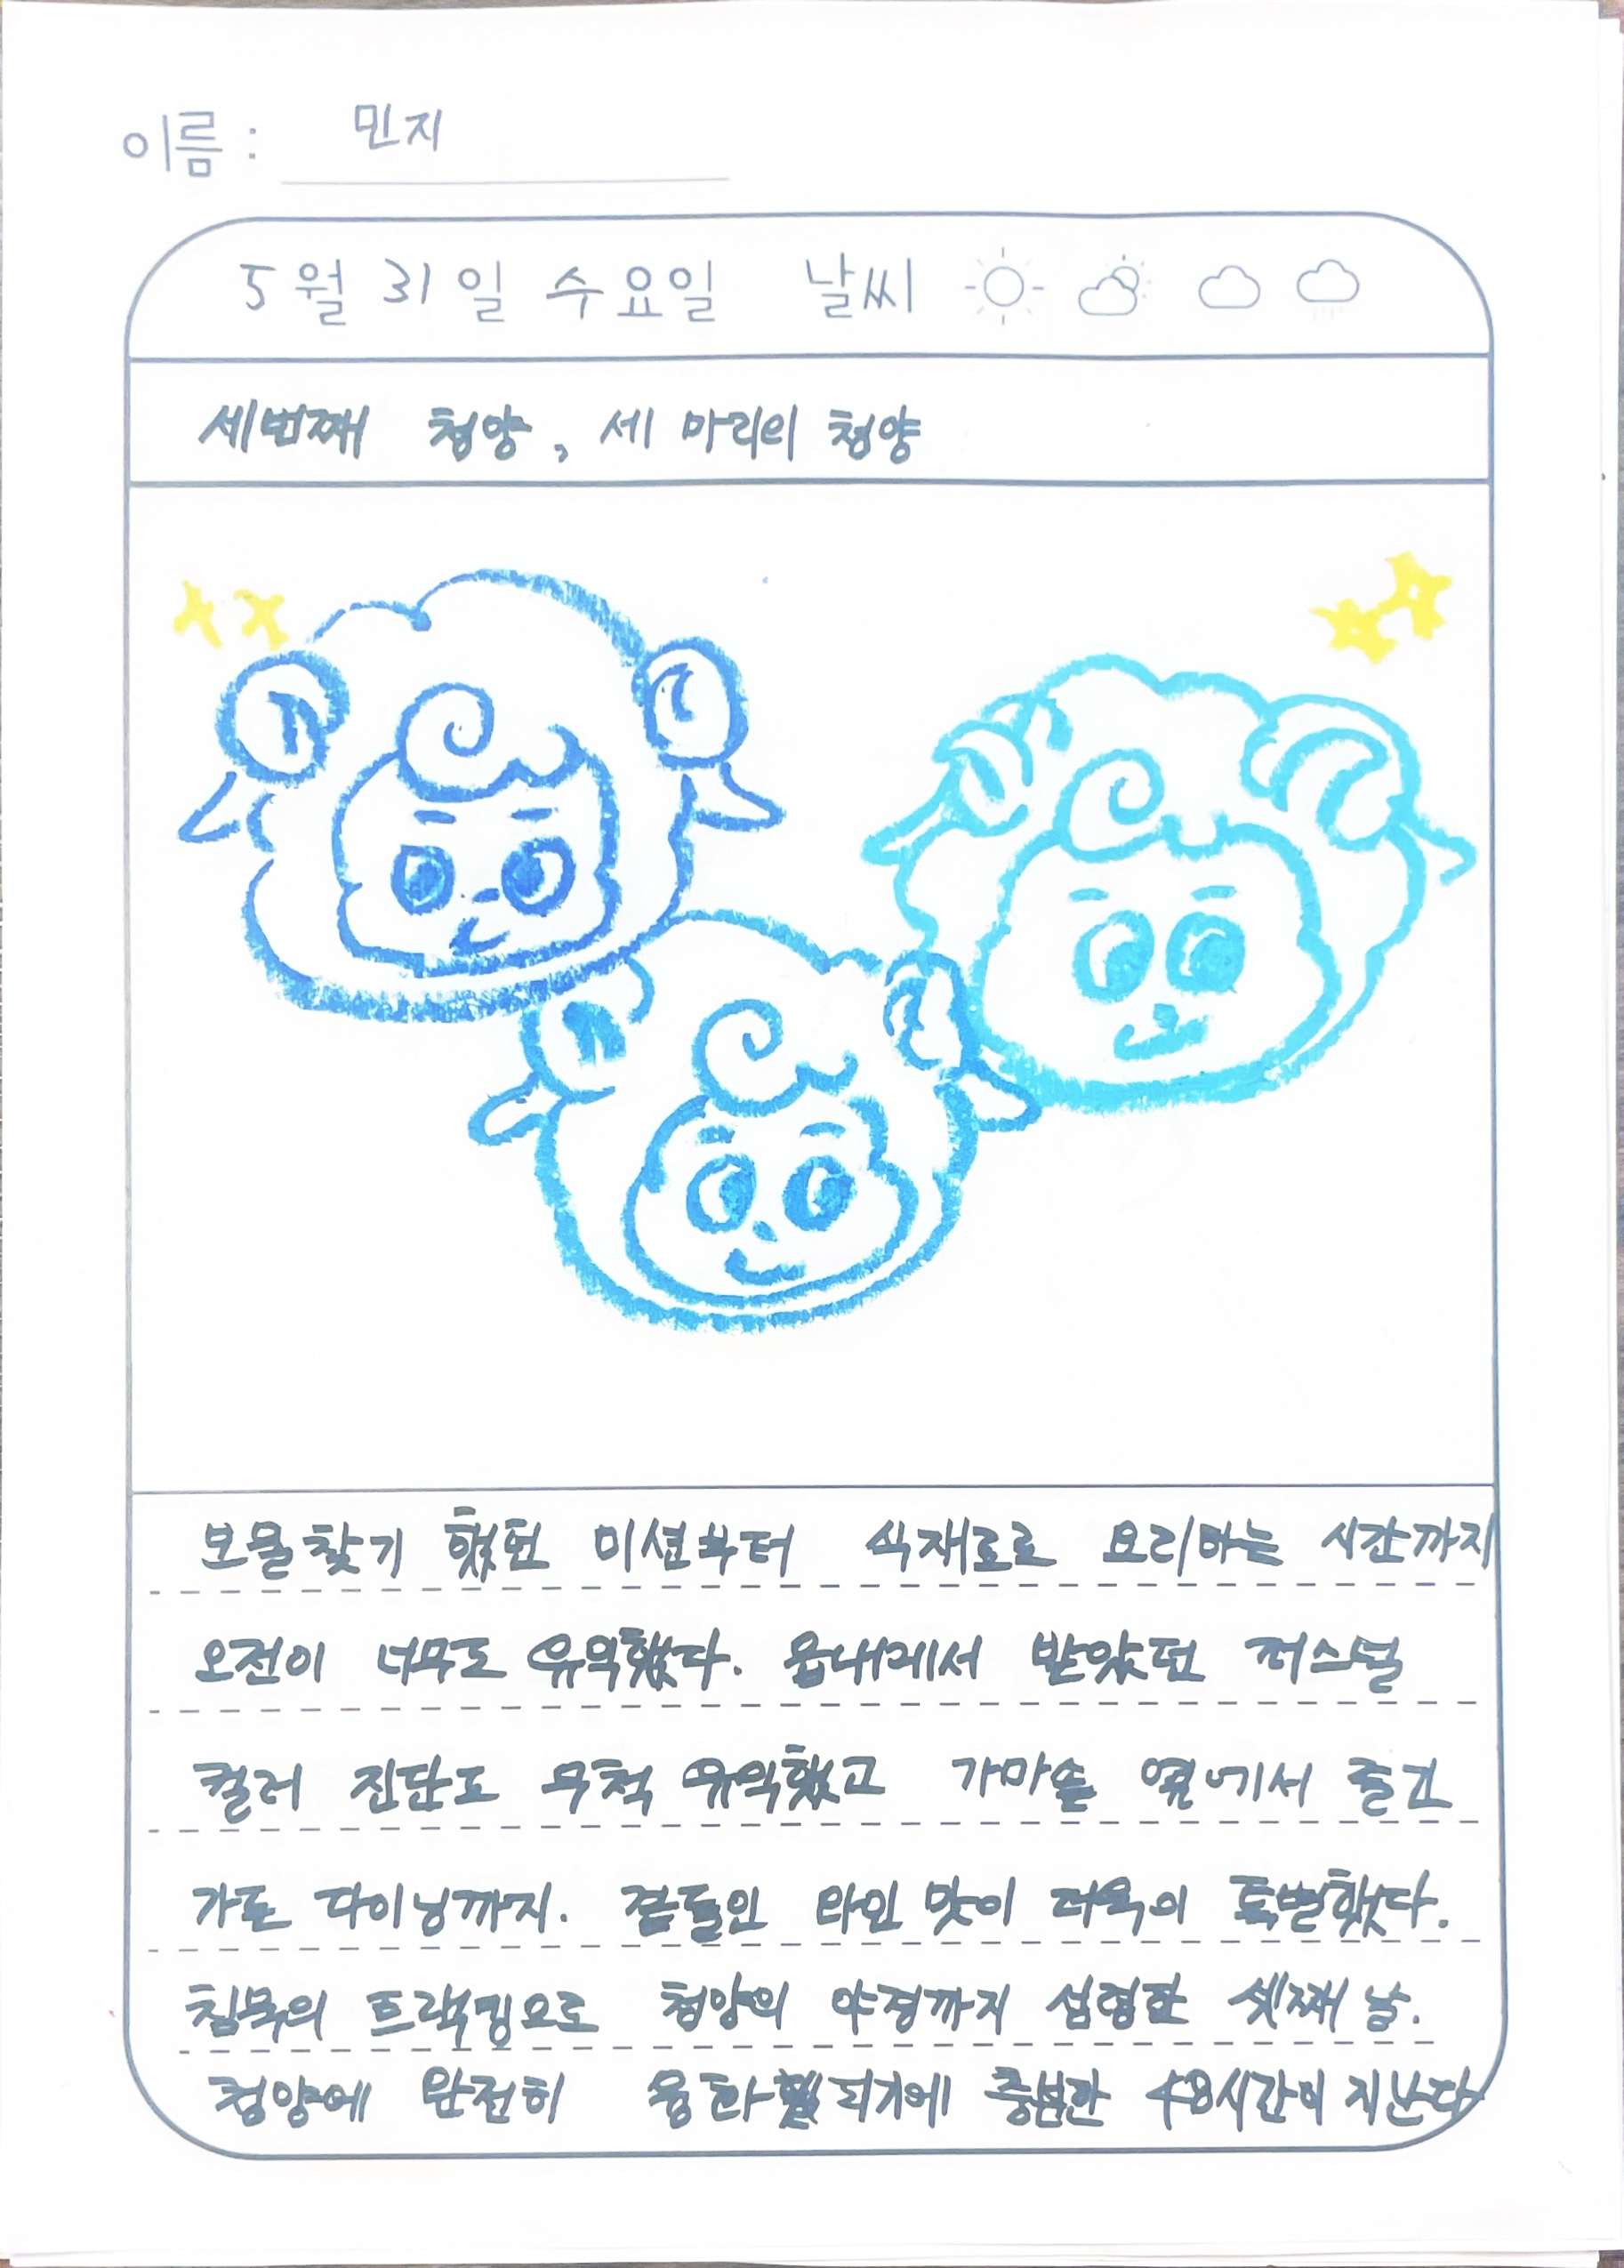 이름 : 민지
5월 31일 수요일 날씨
세번째 청양, 세 마리의 청양
보물찾기 했던 미션부터 식재료로 요리하는 시간까지
오전이 너무도 유익했다. 읍내에서 받았던 퍼스널
컬러 진단도 무척 유익했고 가마솥 옆에서 즐긴
가든 다이닝까지. 곁들인 와인 맛이 더욱이 특별했다.
침묵의 트래킹으로 청양의 야경까지 섭렵한 셋째 날.
청양에 완전히 융화 되기에 충분한 48시간이 지난다